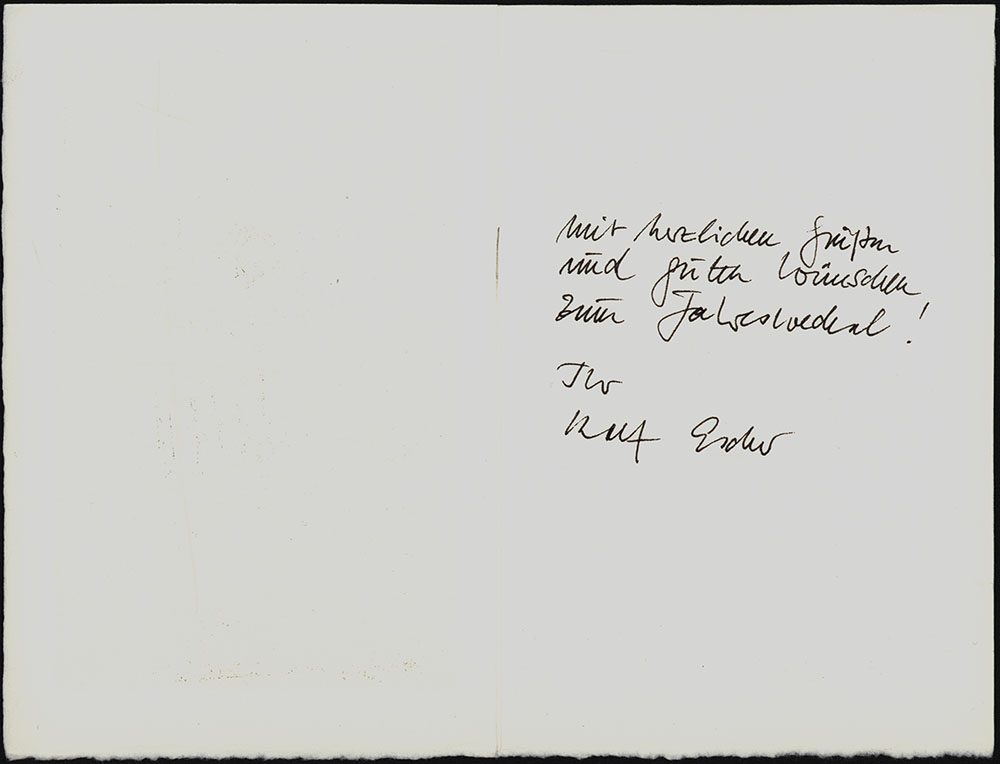 mit herzlichen Grüßen
und guten Wünschen
zum Jahreswechsel!
Ihr
Ralf Escher